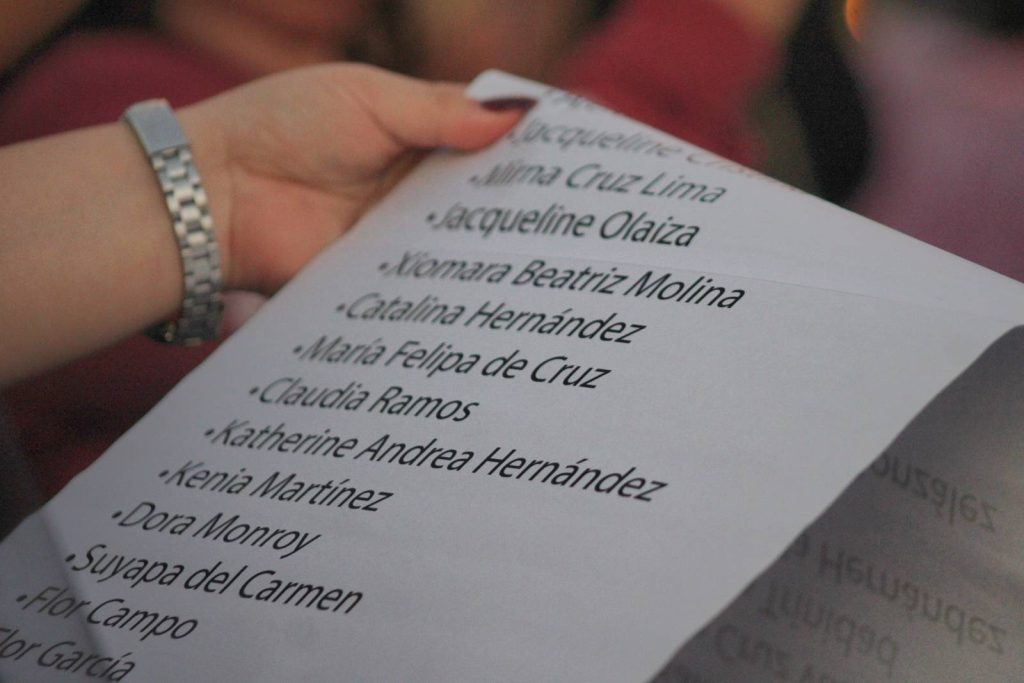 Jacqueline
•Mirna Cruz Lima
•Jacqueline Olaiza
•Xiomara Beatriz Molina
•Catalina Hernández
•María Felipa de Cruz
•Claudia Ramos
•Katherine Andrea Hernández
•Kenia Martínez
•Dora Monroy
•Suyapa del Carmen
•Flor Campo
Flor García
Hernández
Trinidad
Cruz